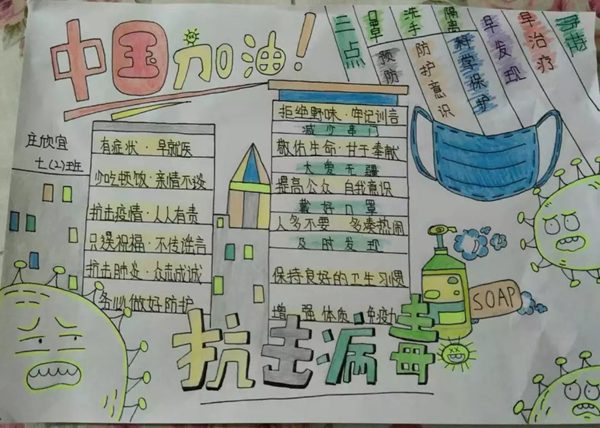 中国加油!
庄欣宜
七(2)班
有症状·早就医
少吃顿饭·亲情不淡
抗击疫情·人人有责
只送祝福·不传谣言
抗击肺炎·众志成诚
务必做好防护
拒绝野味·牢记训言
减少串门
敬佑生命·甘于奉献
大爱无疆
提高公众 自我意识
戴好口罩
人多不要 多凑热闹
及时发现
保持良好的卫生习惯
增强体质 免疫
二点
口罩
预防
洗手
防护意识
隔离
科学保护
早发现
早治疗
SOAP
抗击病毒